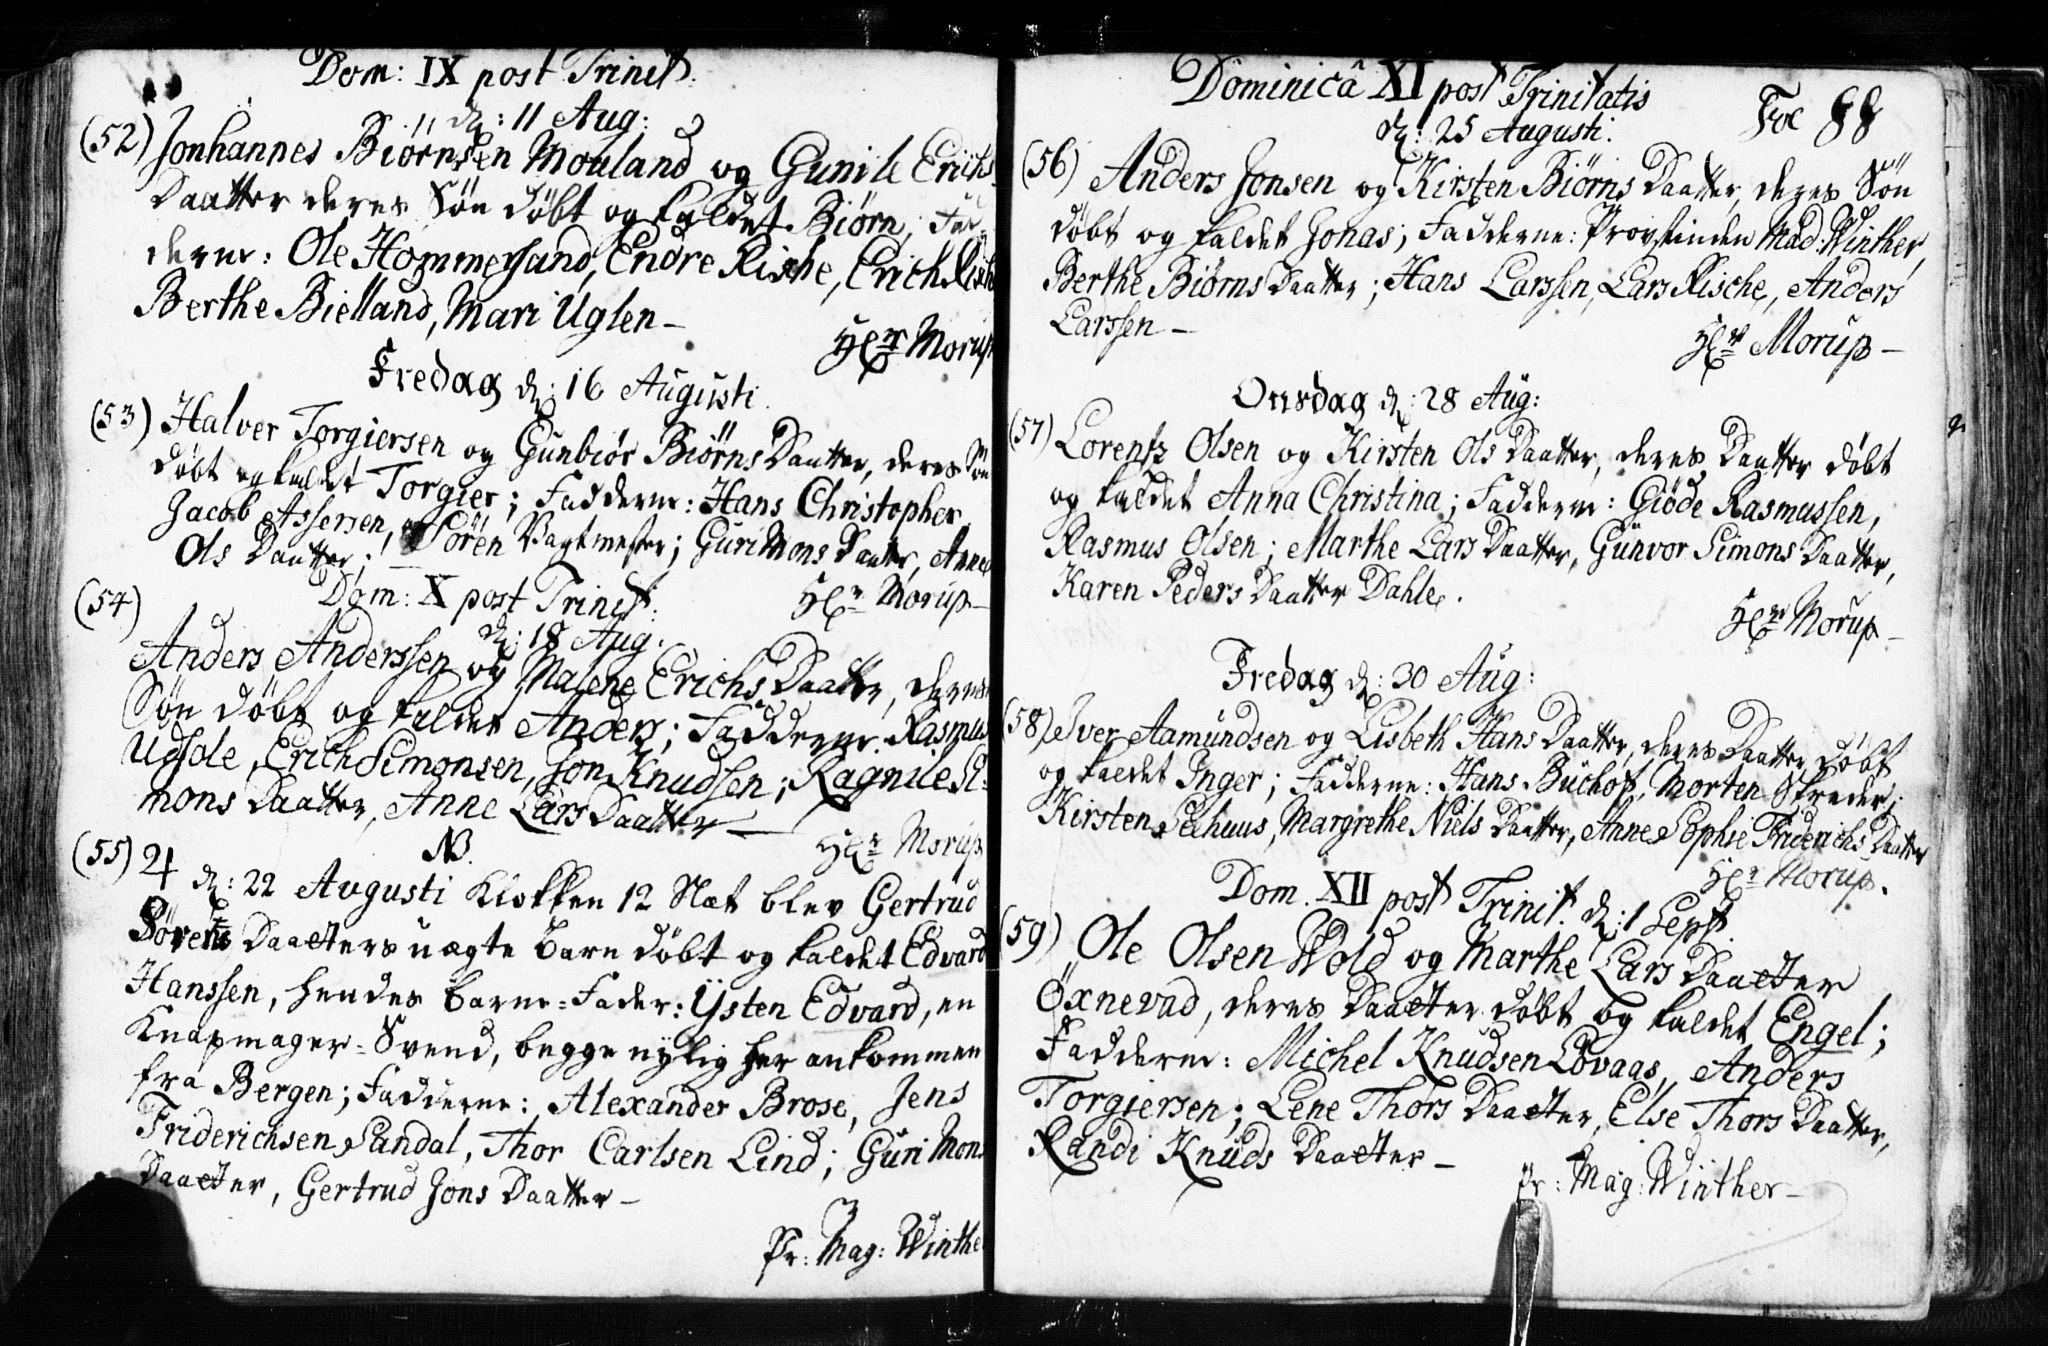 Dom: IX post Trinit.
d: 11 Aug:
(52) Jonhannes Biørnsen Mouland og Gunile Erichs-
Daatter deres Søn døbt og kaldet Biørn; Fad-
derne: Ole Hommersand, Endre Rische, Erich Rische
Berthe Bielland, Mari Uglen –
Hr Morup
Fredag d: 16 Augusti.
(53) Halver Torgiersen og Gunbiør Biørns Daatter, deres Søn
døbt og kaldet Torgier; Fadderne: Hans Christopher,
Jacob Assersen, Søren Vagtmester; Guri Mons Daatter, Anne
Ols Daatter.
Hr Morup –
Dom: X post Trinit:
d: 18 Aug:
(54)
Anders Anderssen og Malene Erichs Daatter, deres
Søn døbt og kaldet Anders; Fadderne: Rasmus
Udsole, Erich Simonsen, Jon Knudsen; Ragnile Si-
mons Daatter, Anne Lars Daatter –
Hr Morup
NB.
(55) ♃ d: 22 Augusti Klokken 12 Nat blev Gertrud
Sørens Daatters uægte Barn døbt og kaldet Edvard
Hanssen, hendes Barne-Fader: Ysten Edvard, en
Knapmager-Svend, begge nylig her ankommen
fra Bergen; Fadderne: Alexander Brose, Jens
Friderichsen Sandal, Thor Carlsen Lind; Guri Mons
Daatter, Gertrud Jons Daatter –
Pr: Mag: Winther
Dominicâ XI post Trinitatis
d: 25 Augusti.
Fol 88
(56) Anders Jonsen og Kirsten Biørns Daatter, deres Søn
døbt og kaldet Jonas; Fadderne: Provstinden Mad: Winther,
Berthe Biørns Daatter; Hans Larssen, Lars Rische, Anders
Larssen –
Hr Morup –
Onsdag d: 28 Aug:
(57) Lorentz Olsen og Kirsten Ols Daatter, deres Daatter døbt
og kaldet Anna Christina; Fadderne: Giøde Rasmussen,
Rasmus Olsen; Marthe Lars Daatter, Gunvor Simons Daatter,
Karen Peders Daatter Dahle.
Hr Morup –
Fredag d: 30 Aug:
(58) Iver Aamundsen og Lisbeth Hans Daatter, deres Daatter døbt
og kaldet Inger; Fadderne: Hans Buchof, Morten Skreder;
Kirsten Seehuus, Margrethe Niels Daatter, Anne Sophie Friderichs Daatter
Hr Morup.
Dom. XII post Trinit. d: 1 Sept.
(59) Ole Olsen Wold og Marthe Lars Daatter
Öxnevad, deres Daatter døbt og kaldet Engel;
Fadderne: Michel Knudsen Lovaas, Anders
Torgiersen; Lene Thors Daatter, Else Thors Daatter,
Randi Knuds Daatter –
Pr: Mag: Winther –